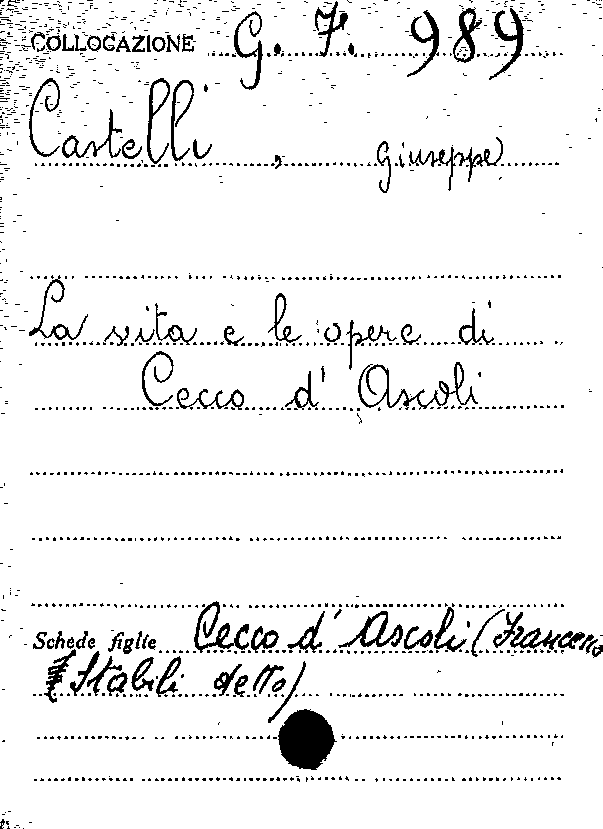 COLLOCAZIONE G. 7. 989
Castelli, Giuseppe
La vita e le opere di
Cecco d' Ascoli
Schede figlie Cecco d' Ascoli (Francesco
Stabili detto)